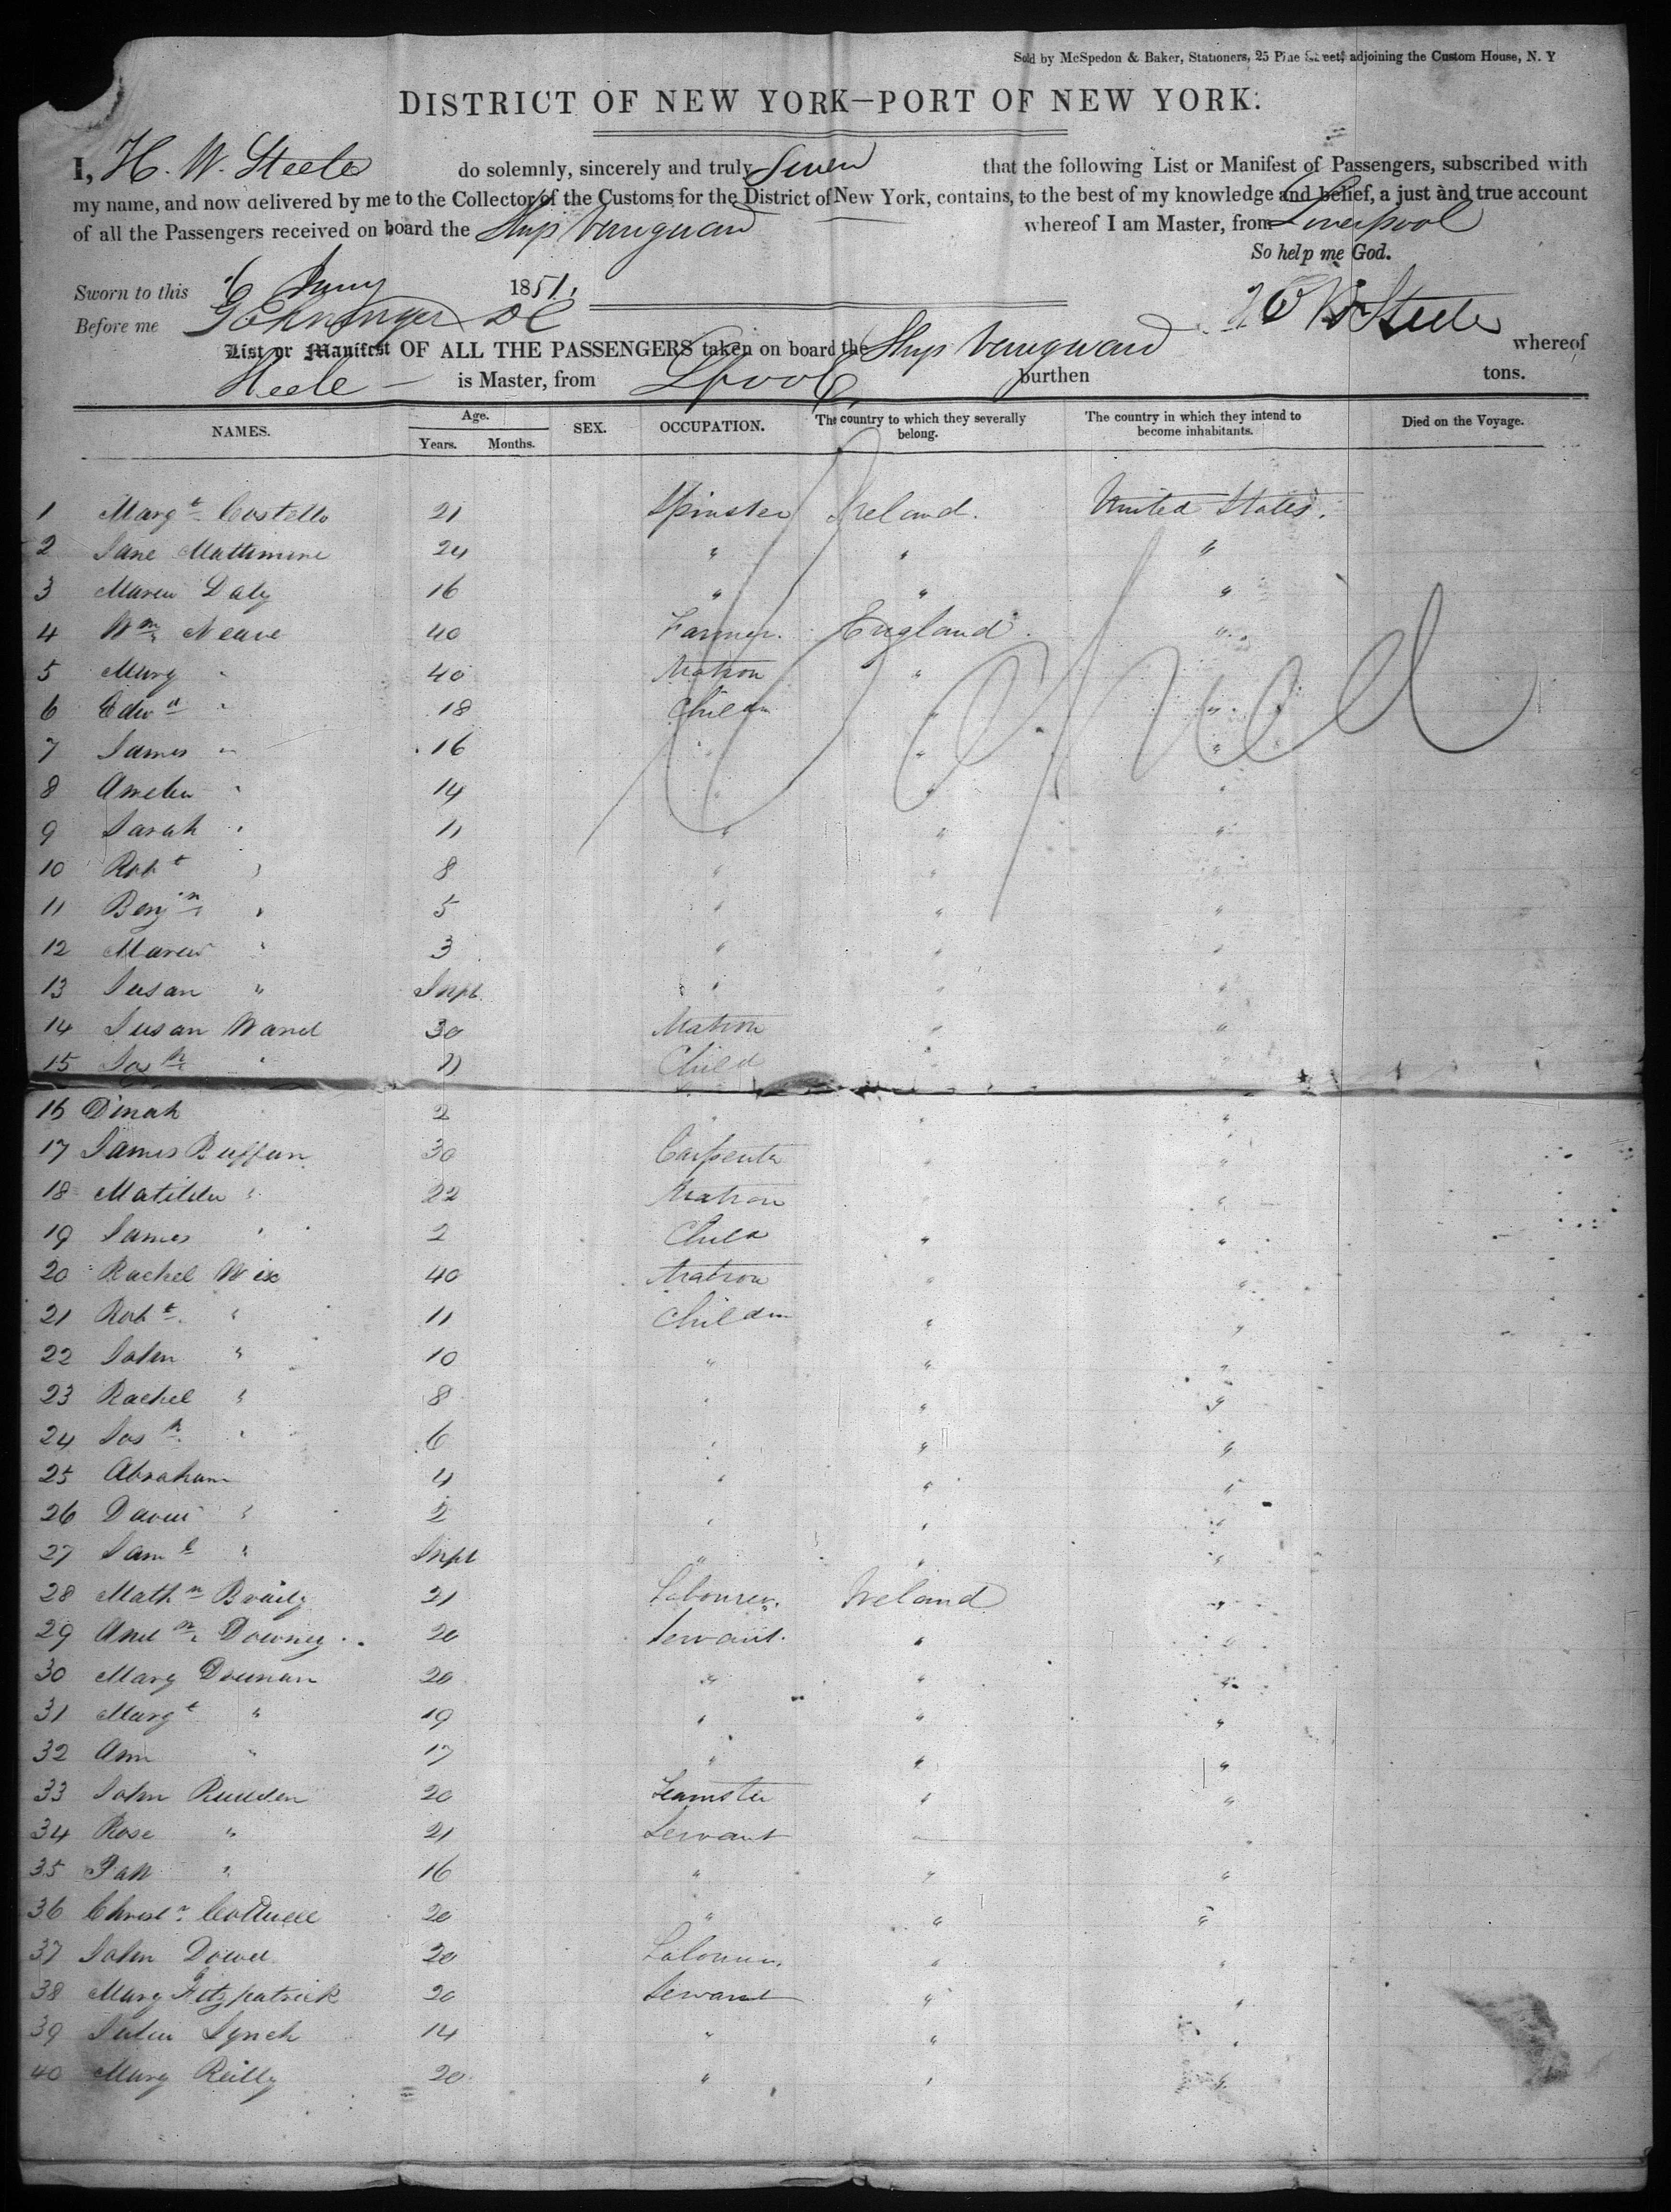 Sold by McSpedon & Baker, Stationers, 25 Pine Street, adjoining the Custom House, N. Y
DISTRICT OF NEW YORK—PORT OF NEW YORK.
I, H. W. Steele do solemnly, sincerely and truly Swear that the following List or Manifest of Passengers, subscribed with
my name, and now delivered by me to the Collector of the Customs for the District of New York, contains, to the best of my knowledge and belief, a just and true account
of all the Passengers received on board the Ship Vanguard whereof I am Master, from Liverpool
So help me God.
Sworn to this 6 1851.
Before me
H W Steele
List or Manifest OF ALL THE PASSENGERS taken on board the Ship Vanguard whereof
Steele is Master, from Lpool burthen tons.
NAMES. Age. Years. Months. SEX. OCCUPATION. The country to which they severally belong. The country in which they intend to become inhabitants. Died on the Voyage.
1 Margt Costello 21 Spinster Ireland. United States.
2 Jane Mattimore 24 " " "
3 Maria Daly 16 " " "
4 Wm Neave 40 Farmer. England. "
5 Mary " 40 Matron " "
6 Edwd " 18 Childn " "
7 James " 16 " " "
8 Amelia " 14 " " "
9 Sarah " 11 " " "
10 Robt " 8 " " "
11 Benjn " 5 " " "
12 Maria " 3 " " "
13 Susan " Inft " " "
14 Susan Ward 30 Matron " "
15 Josh " 11 Child " "
16 Dinah 2 " " "
17 James Buffan 30 Carpenter " "
18 Matilda " 22 Matron " "
19 James " 2 Child " "
20 Rachel Wix 40 Matron " "
21 Robt " 11 Children " "
22 John " 10 " " "
23 Rachel " 8 " " "
24 Josh " 6 " " "
25 Abraham 4 " " "
26 David " 2 " " "
27 Saml " Inft " " "
28 Mathw Brady 21 Labourer. Ireland "
29 Downey 20 Servant. " "
30 Mary 20 " " "
31 Margt " 19 " " "
32 Ann " 17 " " "
33 John Rudden 20 Teamster " "
34 Rose " 21 Servant "
35 Patt " 16 " " "
36 20 " " "
37 John 20 Labourer " "
38 Mary Fitzpatrick 20 Servant " "
39 Julia Lynch 14 " " "
40 Mary Reilly 20 " " "